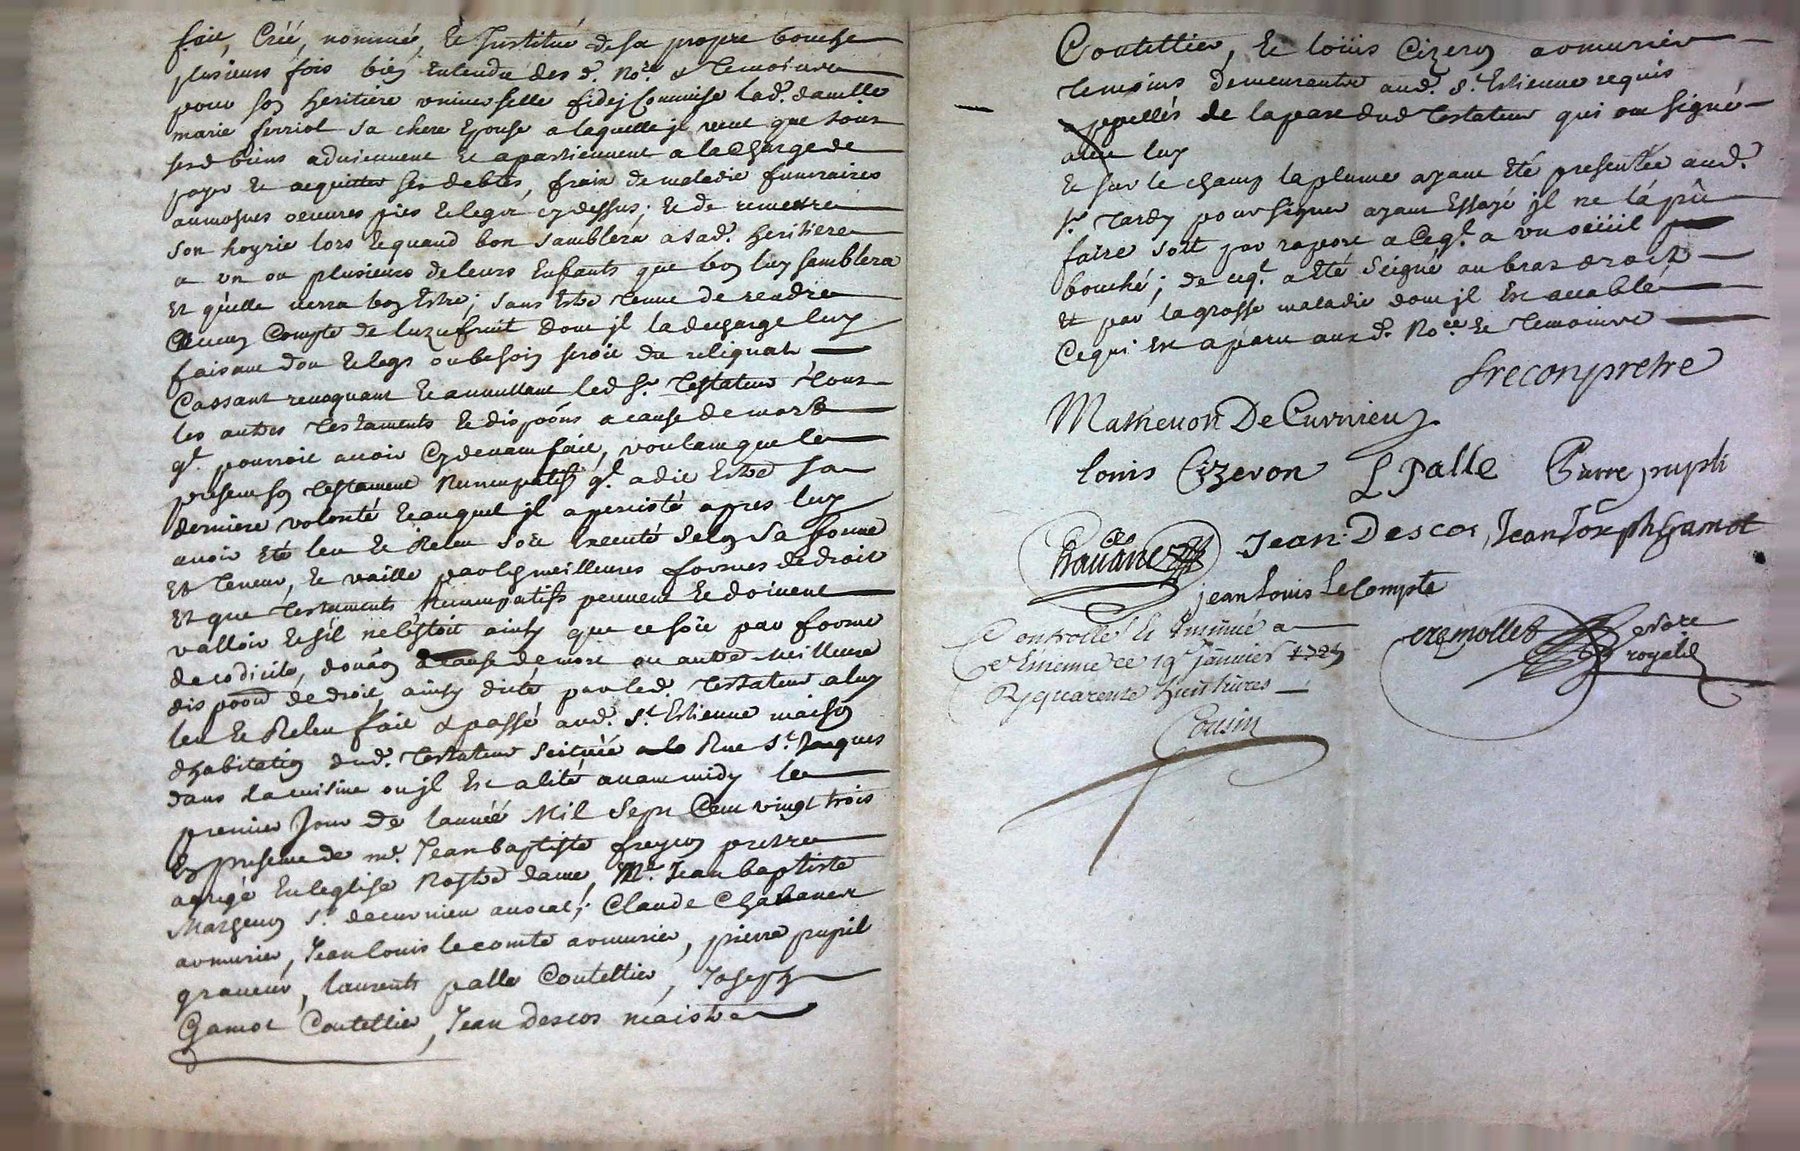 fait, Créé, nommé, et Institué de sa propre bouche
plusieurs fois bien Entendu des d. Nore. & Temoins
pour son heritiere universelle fideicommise lad. damlle
marie ferriol sa chere Epouse a laquelle jl veut que tous
sesd biens adviennent et apartiennent a la Charge de
payer et acquitter ses debtes, fraix de maladie funeraires
aumosnes oeuvres pies et legat cy dessus; et de remettre
son hoyrie lors et quand bon samblera a sad. heritiere
a un ou plusieurs de leurs Enfants que bon luy samblera
Et quelle verra bon Estre; sans Estre tenue de rendre
aucun Compte de luzufruit dont jl la decharge luy
faisant don et legs ou besoin seroit du reliquat
Cassant revoquant et annullant led Sr. Testateur tous
les autres testaments et dispoons a cause de mort
ql. pourroit avoir Cydevant fait, voulant que le
present son testament Nuncupatif ql. a dit Estre sa
derniere volonté et auquel jl a percisté apres luy
avoir eté leu et Releu soit Executé selon sa forme
Et teneur, et vaille par les meilleures formes de droit
Et que testaments Nuncupatifs peuvent et doivent
valloir et sil ne lestoit ainsy que ce soit par forme
de codicile, donaon a cause de mort ou autre meilleure
dispoon de droit, ainsy dicté par led. Testateur a luy
leu et Releu fait & passé aud. St. Estienne maison
dhabitation dud. Testateur scituée a la Rue St. Jacques
dans la cuisine ou jl Est alité avant midy le
premier Jour de lannée Mil Sept Cent vingt trois
En presence de mr. Jean baptiste freycon pretre
agregé En leglise Nostre dame, Mr. Jean baptiste
Mathevon Sr. decurnieu avocat; Claude Chavanet
armurier, Jean louis lecomte armurier, pierre pupil
graveur, laurents palle Coutellier, Joseph
Gamot Coutellier, Jean Descos maistre
Coutellier, Et loüis Cizeron armurier
temoins demeurants aud. St. Estienne requis
appellés de la part dud Testateur qui ont signé
avec luy
Et sur le champ la plume ayant Eté presentée aud.
Sr. tardy pour signer ayant Essayé jl ne la pû
faire soit par raport a Ceql. a un oeiiil
bouché; de ceql. a Eté seigné au bras droit
Et par la grosse maladie dont jl Est accablé
Ce qui Est aparu aux d. Nore. et temoins
frecon pretre
Mathevon De Curnieu
louis Cizeron L Palle Pierre pupil
Chavanet Jean Descos Jean Joseph Gamot
jean Louis Le Compte
Controllé et Insinué a
St Etienne ce 19e janvier 1723
R quarente huit livres
Cousin
Cremollet Notre
royal